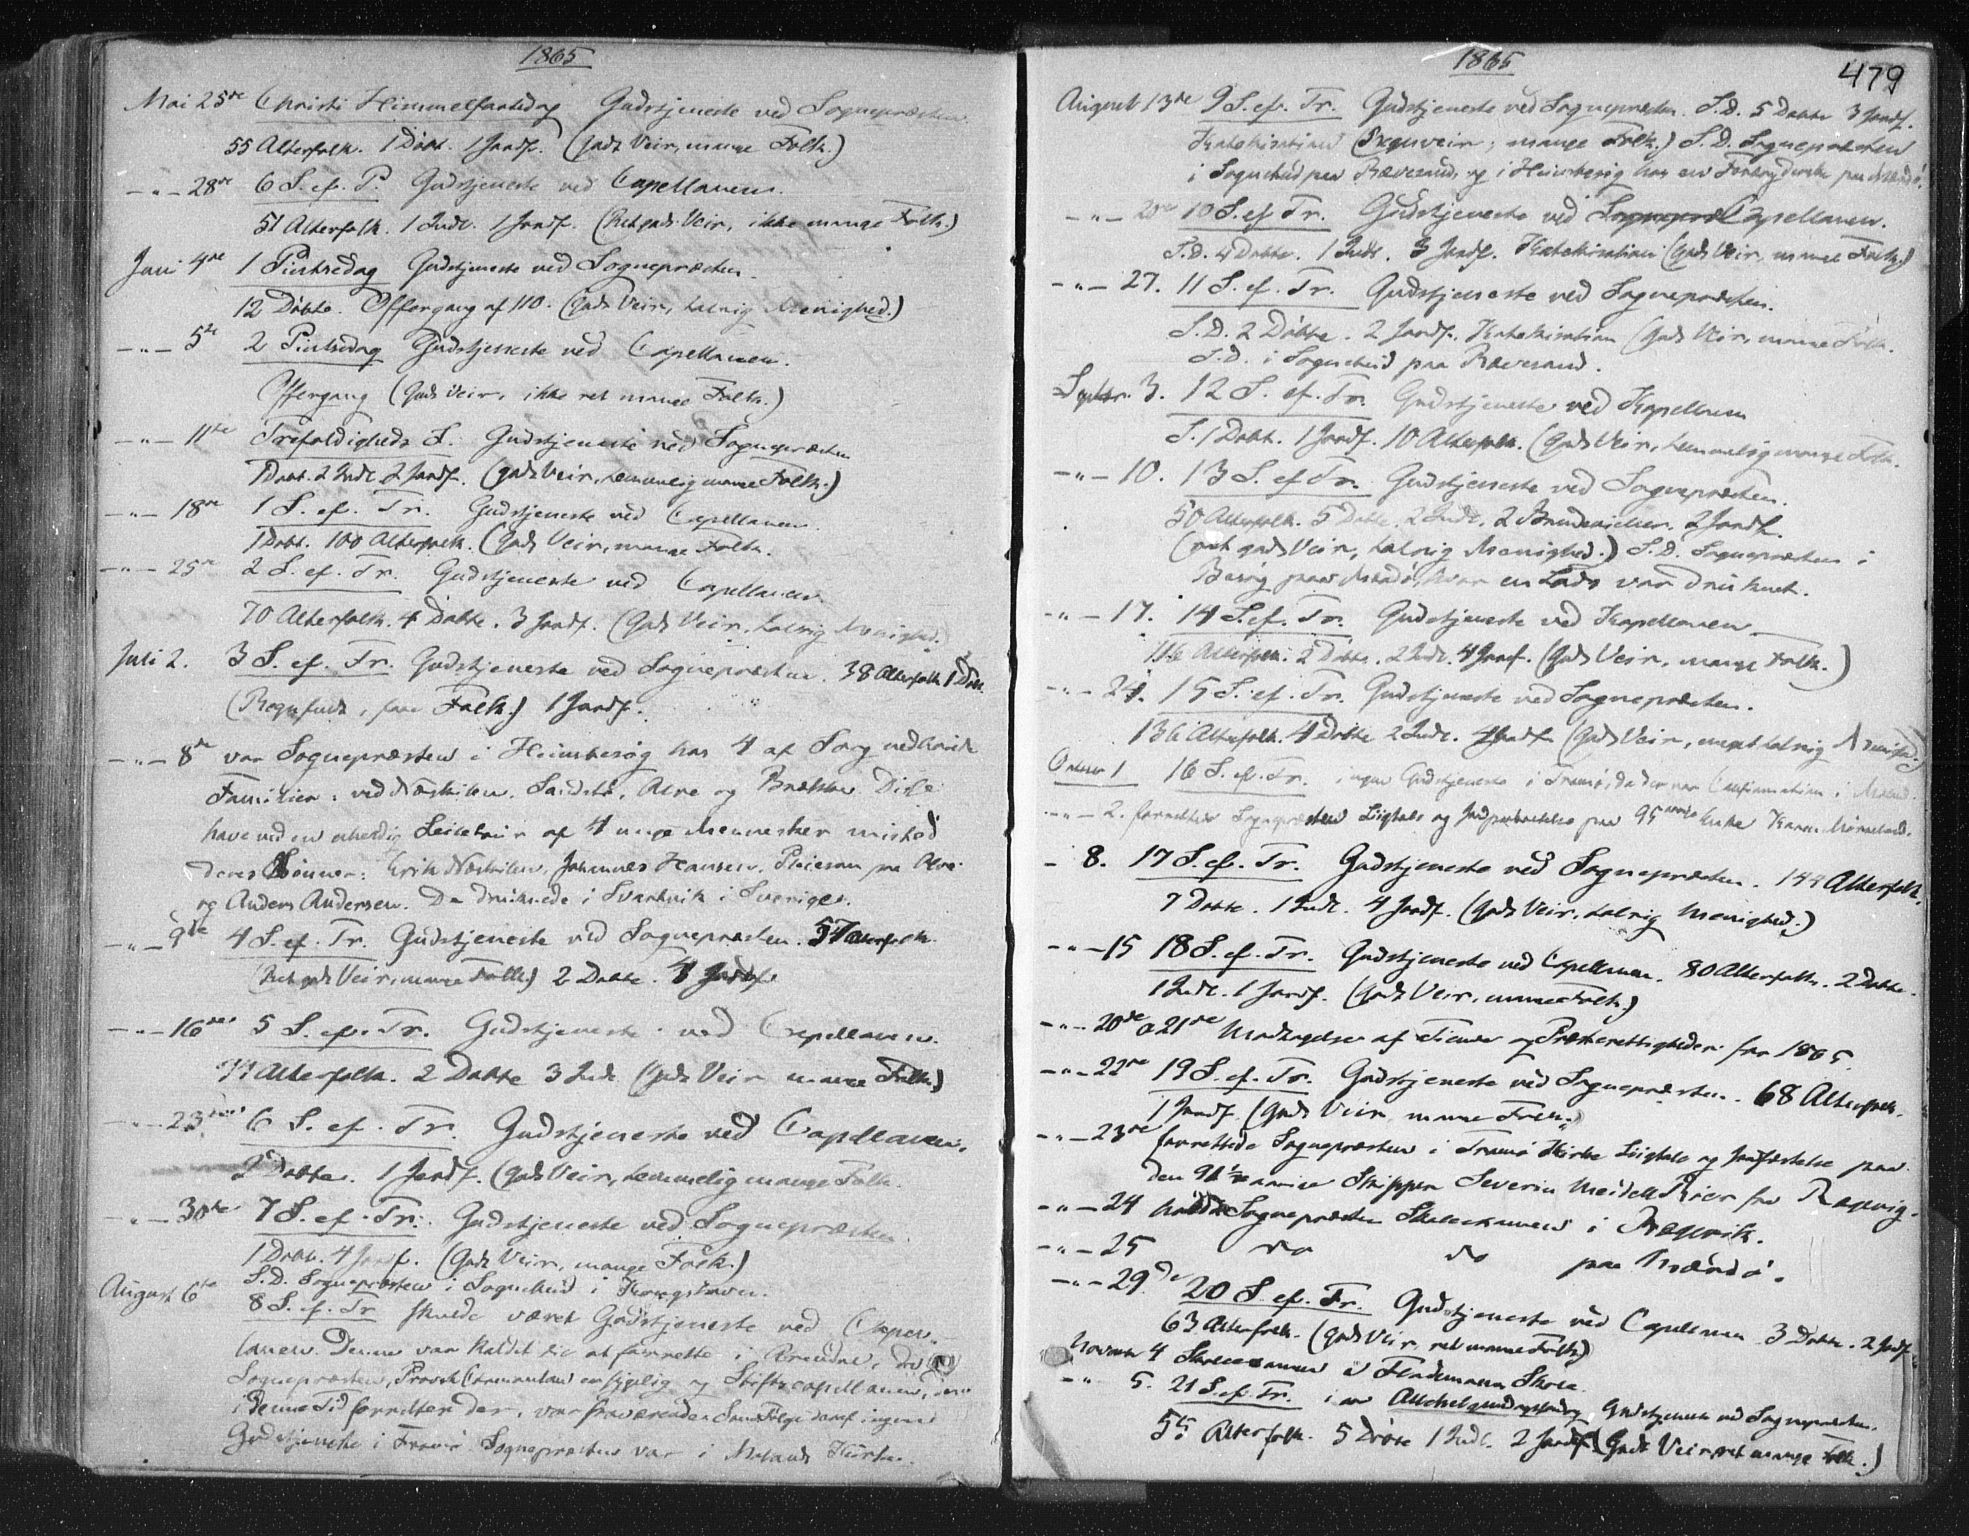 1865
Mai 25de Christi Himmelfartsdag Gudstjeneste ved Sognepræsten
55 Alterfolk. 1 Døbt. 1 Jordf. (godt Veir, mange Folk.)
-"- 28de 6 S. ef. P. Gudstjeneste ved Capellanen.
51 Alterfolk. 1 Indl. 1 Jordf. (Ret godt Veir, ikke mange Folk.)
Juni 4de 1 Pintsedag Gudstjeneste ved Sognepræsten.
12 Døbte. Offergang af 110. (godt Veir, talrig Menighed.)
-"- 5te 2 Pintsedag Gudstjeneste ved Capellanen.
Offergang (Godt Veir, ikke ret mange Folk.)
-"- 11te Trefoldigheds S. Gudstjeneste ved Sognepræsten
1 Døbt. 2 Indl. 2 Jordf. (godt Veir, temmelig mange Folk.)
-"- 18de 1 S. ef. Tr. Gudstjeneste ved Capellanen.
1 Døbt. 100 Alterfolk. (Godt Veir, mange Folk.
-"- 25de 2 S. ef. Tr. Gudstjeneste ved Capellanen
70 Alterfolk. 4 Døbte. 3 Jordf. (Godt Veir, talrig Menighed.)
Juli 2. 3 S. ef. Tr. Gudstjeneste ved Sognepræsten. 38 Alterfolk 1 Døbt.
(Regnfuldt, faae Folk.) 1 Jordf.
-"- 8de var Sognepræsten i Huusbesøg hos 4 af Sorg nedbøiede
Familier: ved Næskilen, Sandstø, Alve og Brække. Disse
have ved en uheldig Seiletour af 4 unge Mennesker mistet
deres Sønner: Erik Næskilen, Johannes Hansen, Pleiesøn paa Alve
og Anders Andersen. De druknede i Svartvik i Sverige.
-"- 9de 4 S. ef. Tr. Gudstjeneste ved Sognepræsten. 57 Alterfolk.
(Ret godt Veir, mange Folk) 2 Døbte. 4 Jordf.
-"- 16de 5 S. ef. Tr. Gudstjeneste ved Capellanen.
71 Alterfolk. 2 Døbte 3 Indl. (Godt Veir mange Folk)
-"- 23de 6 S. ef. Tr. Gudstjeneste ved Capellanen.
2 Døbte. 1 Jordf. (godt Veir, temmelig mange Folk.
-"- 30te 7 S. ef. Tr. Gudstjeneste ved Sognepræsten.
1 Døbt. 4 Jordf. (Godt Veir, mange Folk.)
S.D. Sognepræsten i Sognebud i Kongshavn.
August 6te 8 S. ef. Tr skulde været Gudstjeneste ved Capel-
lanen. Denne var kaldet til at forrette i Arendal, da
Sognepræsten, Provst er sygelig og Stiftscapellanen, der
i denne Tid forretter der, var fraværende. Som Følge deraf ingen
Gudstjeneste i Tromø. Sognepræsten var i Kirke.
1865
479
August 13de 9 S. ef. Tr. Gudstjeneste ved Sognepræsten. S.D. 5 Døbte 3 Jordf.
Katekisation (Regnveir, mange Folk.) S.D. Sognepræsten
i Sognebud paa Revesand, og i Huusbesøg hos en paa Mærdø.
-"- 20de 10 S. ef Tr. Gudstjeneste ved Capellanen.
S.D. 4 Døbte. 1 Indl. 3 Jordf. Katekisation (godt Veir, mange Folk.)
-"- 27. 11 S. ef. Tr. Gudstjeneste ved Sognepræsten.
S.D. 2 Døbte. 2 Jordf. Katekisation (godt Veir, mange Folk.
S.D. i Sognebud paa Revesand.
Septbr. 3. 12 S. ef. Tr. Gudstjeneste ved Kapellanen
S. 1 Døbt. 1 Jordf. 10 Alterfolk. (godt Veir, temmelig mange Folk.
-"- 10. 13 S. ef Tr. Gudstjeneste ved Sognepræsten.
50 Alterfolk. 5 Døbte. 2 Indl. 2 Brudevielser. 2 Jordf.
(ret godt Veir, talrig Menighed.) S.D. Sognepræsten i
Besøg paa Mærdø, hvor en Lods var druknet.
-"- 17. 14 S. ef. Tr. Gudstjeneste ved Kapellanen
116 Alterfolk. 2 Døbte. 2 Indl. 4 Jordf. (Godt Veir, mange Folk.)
-"- 24. 15 S. ef. Tr. Gudstjeneste ved Sognepræsten.
136 Alterfolk. 4 Døbte 2 Indl. 4 Jordf (Godt Veir, meget talrig Menighed.)
October 1 16 S. ef. Tr. ingen Gudstjeneste i Tromø, da der var Confirmation i
-"- 2. forrettede Sognepræsten Liigtale og Jordpaakastelse paa 95 aarige Enke Karen
- 8. 17 S. ef. Tr. Gudstjeneste ved Sognepræsten. 144 Alterfolk.
7 Døbte. 1 Indl. 4 Jordf. (godt Veir, talrig Menighed.)
-"- 15 18 S. ef. Tr. Gudstjeneste ved Capellanen. 80 Alterfolk. 2 Døbte.
1 Indl. 1 Jordf. (godt Veir, mange Folk.)
-"- 20de o 21de Modtagelse af Tiende og Præsterettigheder for 1865.
-"- 22de 19 S. ef. Tr. Gudstjeneste ved Sognepræsten. 68 Alterfolk.
1 Jordf. (Godt Veir, mange Folk.)
-"- 23de forrettede Sognepræsten i Tromø Kirke Liigtale og Jordfæstelse paa
den 91½ aarige Skipper Severin Meidell fra
-"- 24 holdt Sognepræsten Skoleexamen i
-"- 25 do do paa Mærdø.
-"- 29de 20 S. ef. Tr. Gudstjeneste ved Capellanen 3 Døbte. 2 Jordf.
63 Alterfolk. (godt Veir, ret mange Folk)
Novembr 4 Skoleexamen i Skole.
-"- 5. 21 S. ef. Tr. i en Allehelgensdag Gudstjeneste ved Sognepræsten.
55 Alterfolk. 5 Døbte 1 Indl. 2 Jordf. (Godt Veir, ret mange Folk.)